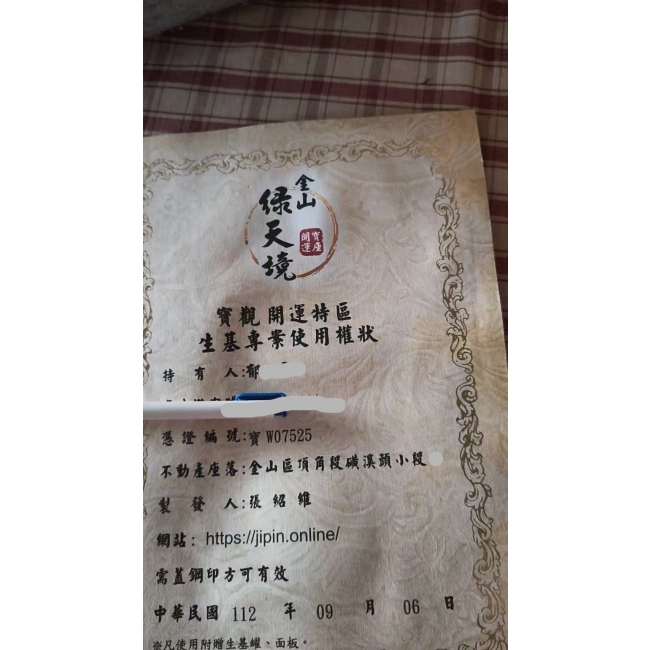 金山
綠天境
寶座
開運
寶觀開運特區
生基專案使用權狀
持有人:郁
憑證編號:寶W07525
不動產座落:金山區頂角段磺溪頭小段
製發人:張紹維
網站: https://jipin.online/
需蓋鋼印方可有效
中華民國 112 年 09 月 06 日
※凡使用附贈生基罐、面板。